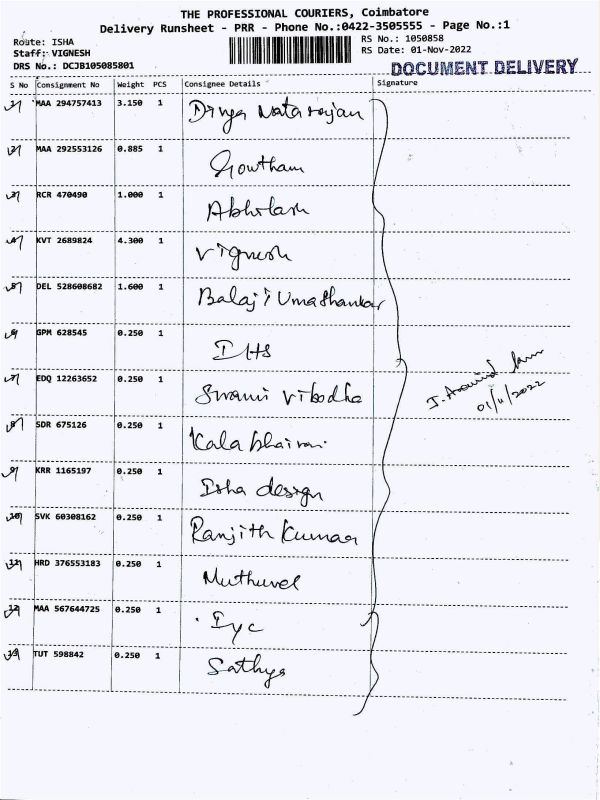 THE PROFESSIONAL COURIERS, Coimbatore
Delivery Runsheet - PRR - Phone No.:0422-3505555 - Page No.:1
Route: ISHA
Staff: VIGNESH
DRS No.: DCJB105085801
RS No.: 1050858
RS Date: 01-Nov-2022
DOCUMENT DELIVERY
S No Consignment No Weight PCS Consignee Details Signature
1 MAA 294757413 3.150 1 Divya Natarajan
2 MAA 292553126 0.885 1 Gowtham
3 RCR 470490 1.000 1 Abhilash
4 KVT 2689824 4.300 1 Vignesh
5 DEL 528608682 1.600 1 Balaji Umashankar
6 GPM 628545 0.250 1 IHS
7 EDQ 12263652 0.250 1 Swami Vibodha
8 SDR 675126 0.250 1 Kala bhairavi
9 KRR 1165197 0.250 1 Isha design
10 SVK 60308162 0.250 1 Ranjith Kumaar
11 HRD 376553183 0.250 1 Muthuvel
12 MAA 567644725 0.250 1 Iyc
13 TUT 598842 0.250 1 Sathya
01/11/2022